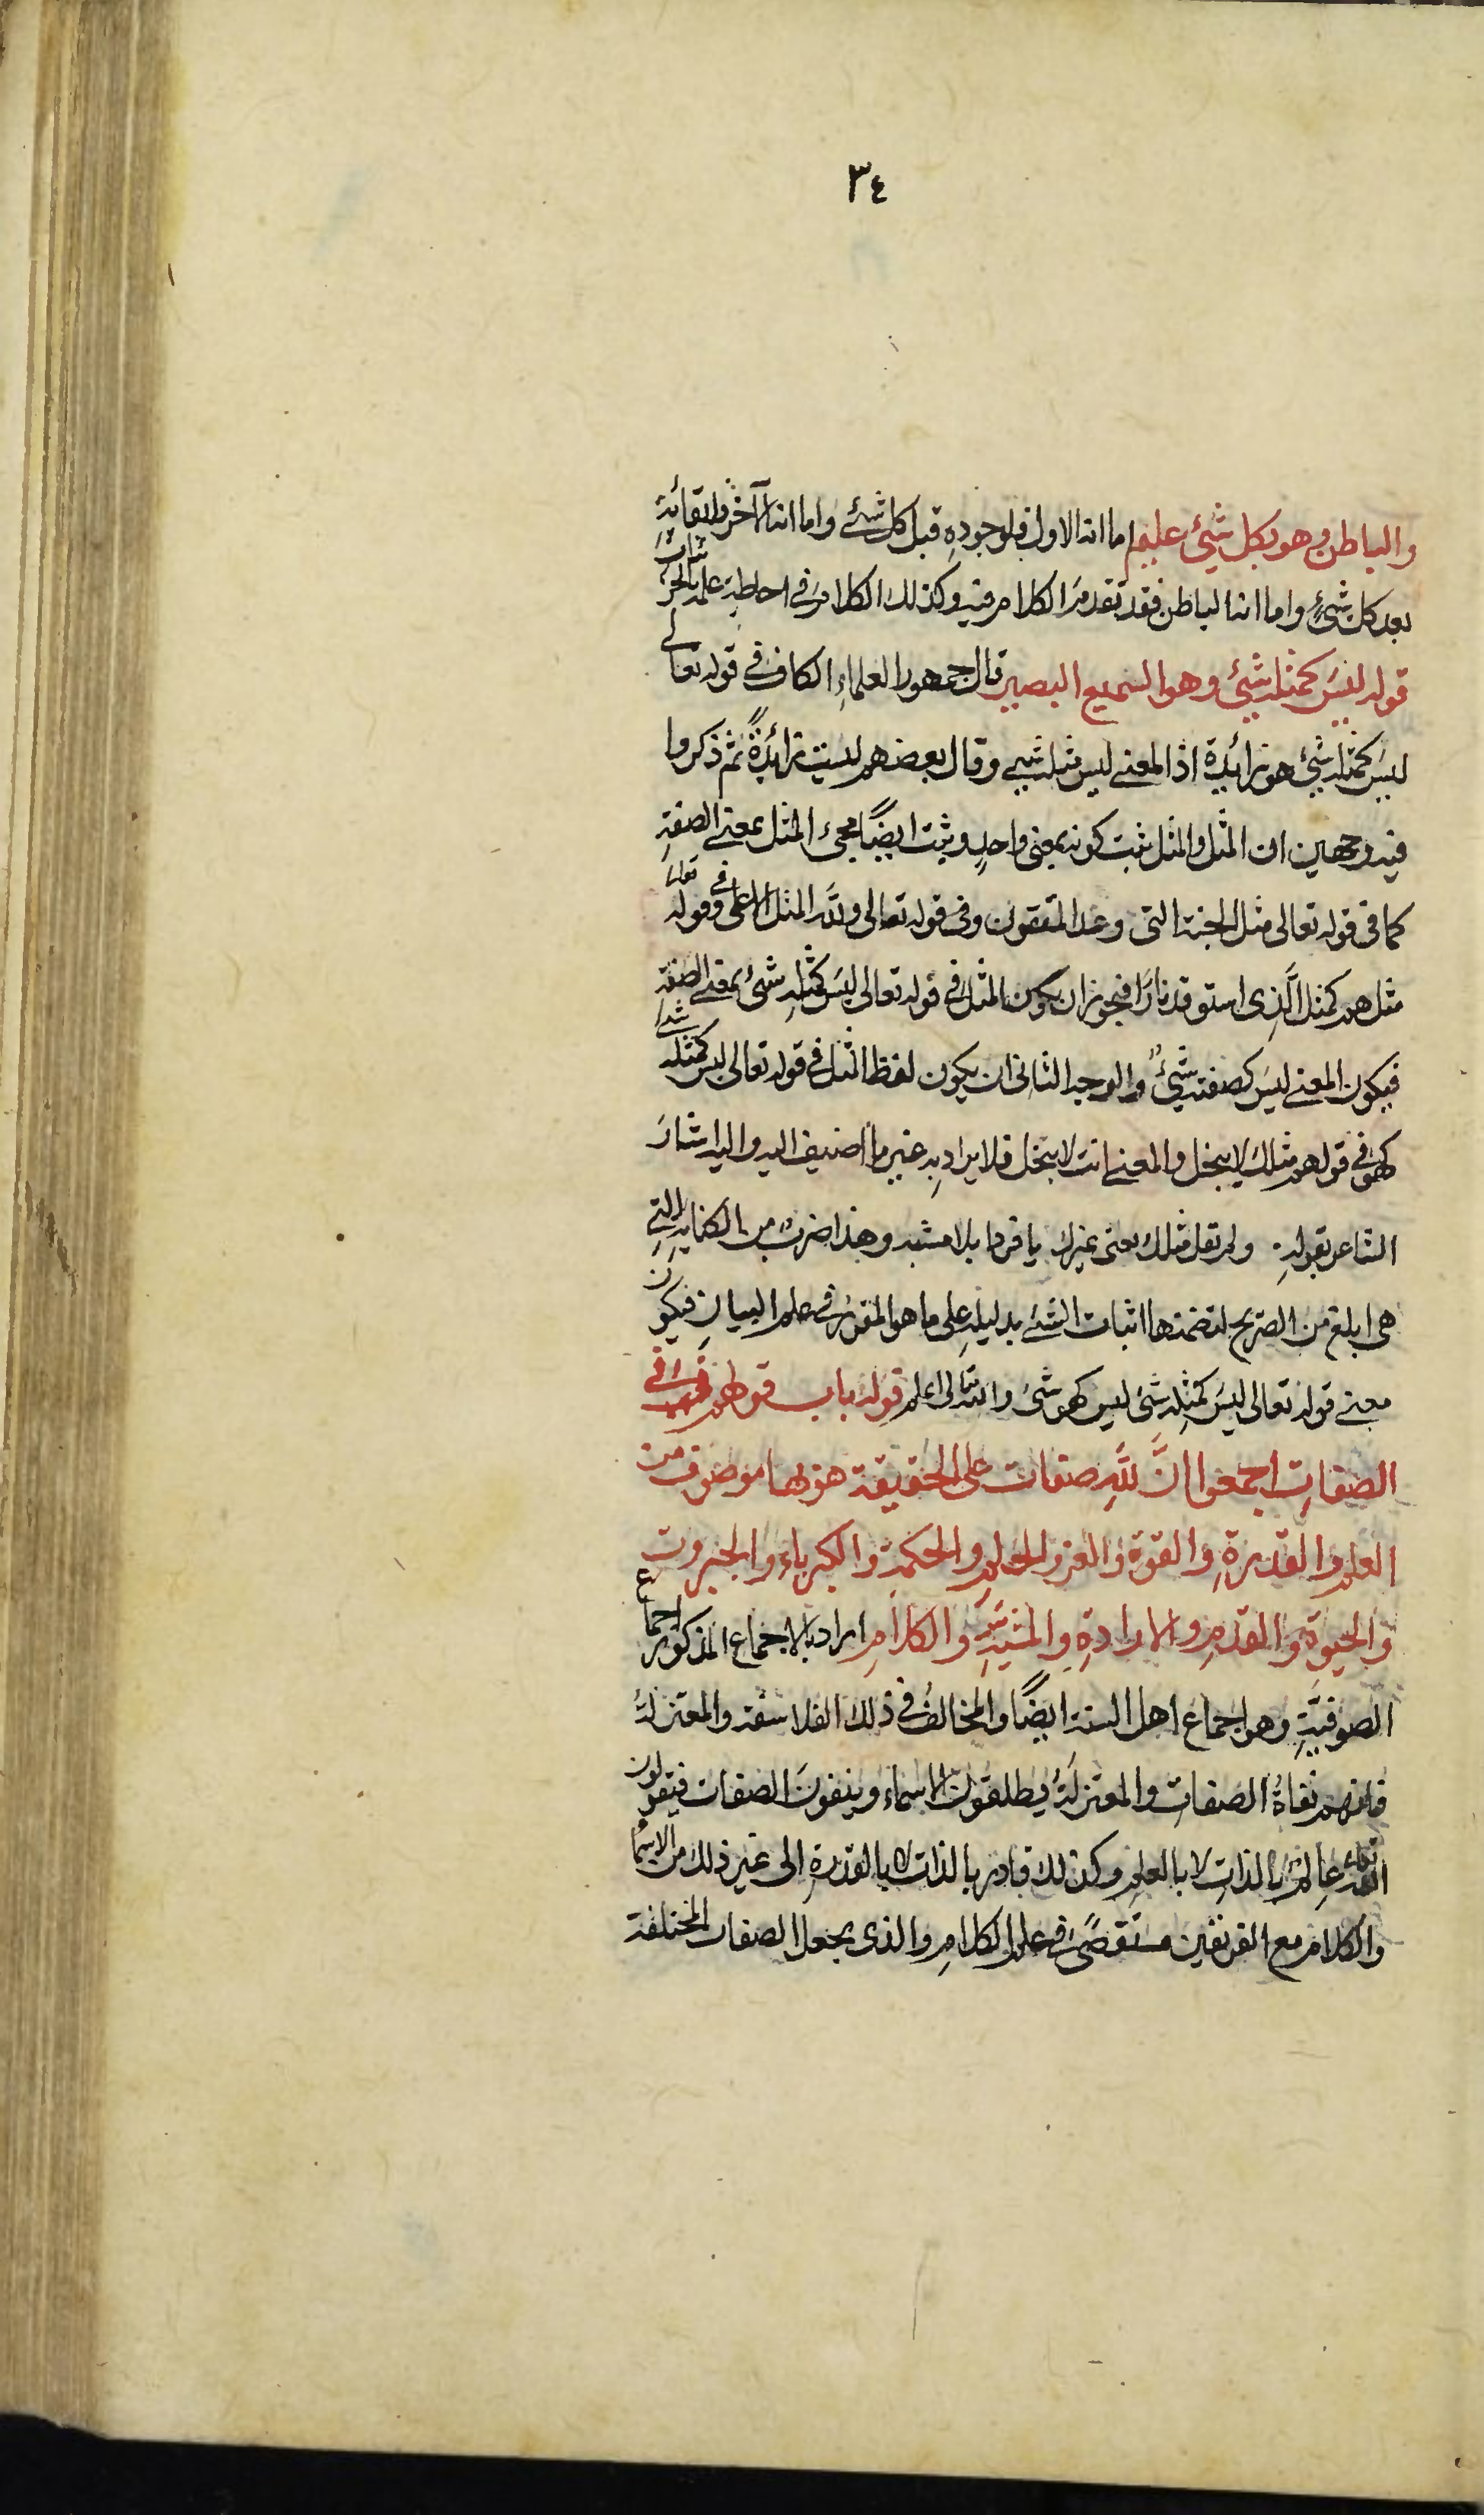 ٣٤
والباطن وهو بكل شيئ عليم اما انه الاول فلوجوده قبل كل شئ واما انه الآخر فلبقائه
بعد كل شئ واما انه الباطن فقد تقدم الكلام فيه وكذلك الكلام في احاطة علمه بالجزئيات
قوله ليس كمثله شيئ وهو السميع البصير قال جمهور العلماء الكاف في قوله تعالى
ليس كمثله شيئ هو زائدة اذ المعنى ليس مثله شيئ وقال بعضهم ليست زائدة ثم ذكروا
فيه وجهين ان المثل والمثل ثبت كونه بمعنى واحد وثبت ايضًا مجئ المثل بمعنى الصفة
كما في قوله تعالى مثل الجنة التى وعد المتقون وفى قوله تعالى ولله المثل الاعلى وفي قوله تعالى
مثلهم كمثل الذى استوقد نارًا فيجوز ان يكون المثل فى قوله تعالى ليس كمثله شئ بمعنى الصفة
فيكون المعنى ليس كصفته شيئ والوجه الثانى ان يكون لفظ المثل فى قوله تعالى ليس كمثله شئ
كهو في قولهم مثلك لا يبخل والمعنى انت لا تبخل فلا يراد به غير ما اضيف اليه واليه اشار
الشاعر بقوله ولم تقل مثلك يعنى غيرك يا فردا بلا مشبه وهذا ضرب من الكناية التي
هى ابلغ من الصريح لتضمنها اثبات الشئ بدليله على ما هو المقرر فى علم البيان فيكون
معنى قوله تعالى ليس كمثله شئ ليس كهو شئ والله تعالى اعلم قوله باب قولهم في
الصفات اجمعوا انَّ لله صفات على الحقيقة هو بها موصوف من
العلم والقدرة والقوة والعز والحلم والحكمة والكبرياء والجبروت
والحيوة والقدم والارادة والمشيئة والكلام اراد بالاجماع المذكور اجماع
الصوفية وهو اجماع اهل السنة ايضًا والمخالف فى ذلك الفلاسفة والمعتزلة
فانهم نفاة الصفات والمعتزلة يطلقون الاسماء وينفون الصفات فيقولون
الله تعالى عالم بالذات لا بالعلم وكذلك قادر بالذات لا بالقدرة الى غير ذلك من الاسماء
والكلام مع الفريقين مستقصًى في علم الكلام والذى يجعل الصفات المختلفة